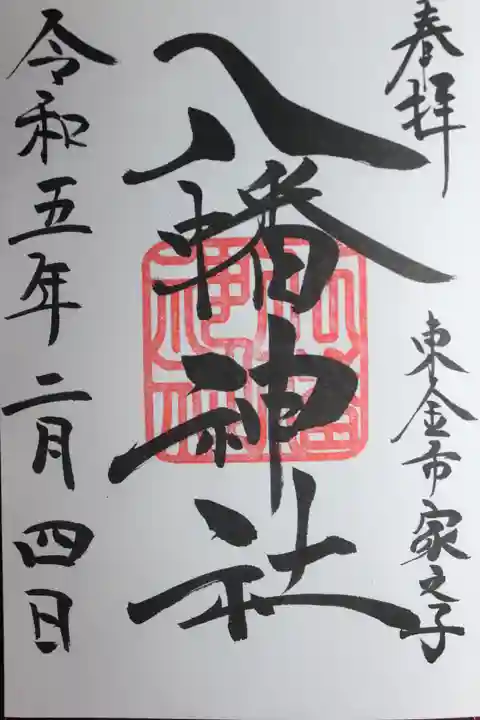 奉拝
東金市家之子
八幡神社
八幡神社
令和五年二月四日